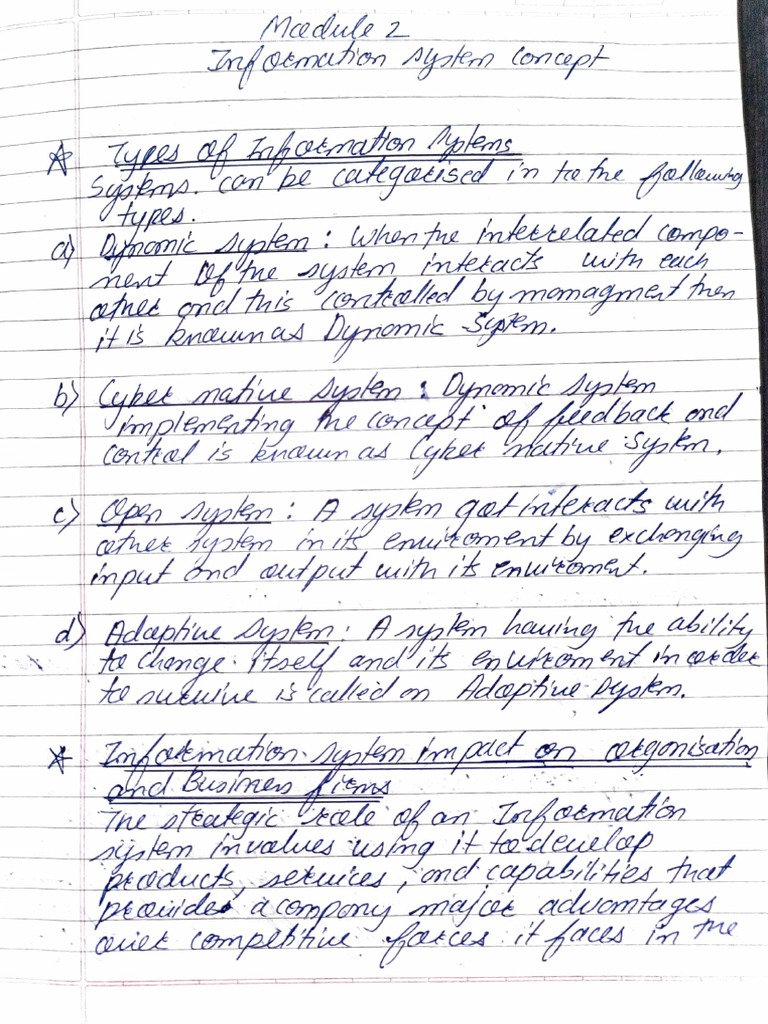 Module 2
Information system concept
* Types of Information Systems
Systems. can be categorised in to the following
types.
a) Dynamic system : When the interrelated compo-
nent of the system interacts with each
other and this controlled by managment then
it is known as Dynamic System.
b) Cyber native system : Dynamic system
implementing the concept of feedback and
control is known as Cyber native system.
c) Open system : A system got interacts with
other system in its enviroment by exchanging
input and output with its enviroment.
d) Adaptive system : A system having the ability
to change itself and its enviroment in order
to survive is called an Adaptive system.
* Information system impact on organisation
and Business firms
The strategic role of an Information
system involves using it to develop
products, services, and capabilities that
provides a company major advantages
over competitive forces it faces in the